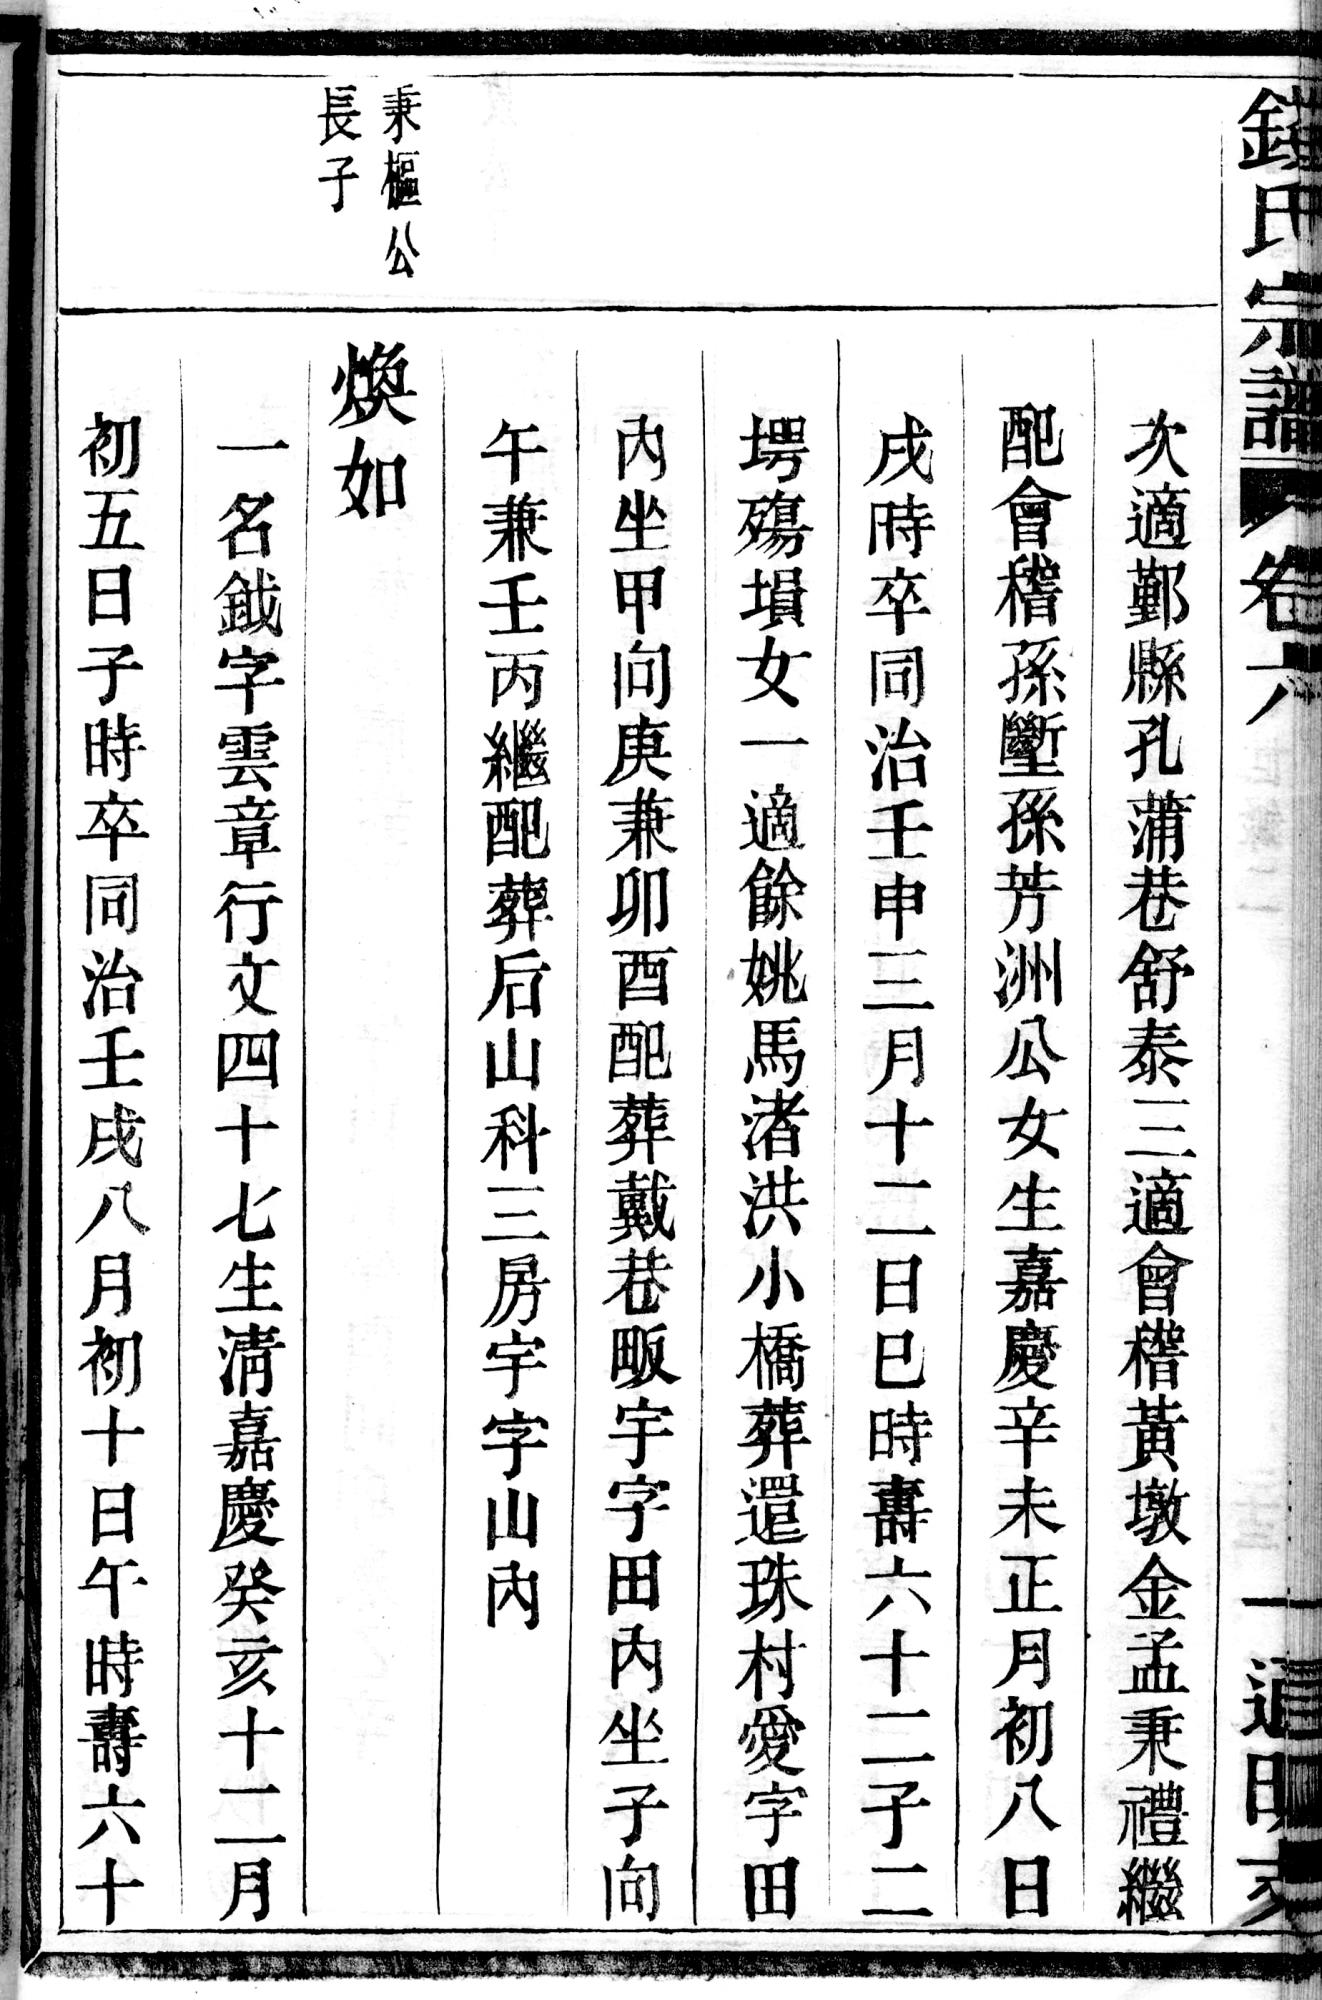 氏宗譜 卷六 一 道明
次適鄞縣孔蒲巷舒泰三適會稽黃墩金孟秉禮繼
配會稽孫壍孫芳洲公女生嘉慶辛未正月初八日
戌時卒同治壬申三月十二日巳時壽六十二子二
堮殤塤女一適餘姚馬渚洪小橋葬還珠村愛字田
內坐甲向庚兼卯酉配葬戴巷畈宇字田內坐子向
午兼壬丙繼配葬后山科三房宇字山內
秉樞公
長子
煥如
一名鉞字雲章行文四十七生淸嘉慶癸亥十二月
初五日子時卒同治壬戌八月初十日午時壽六十